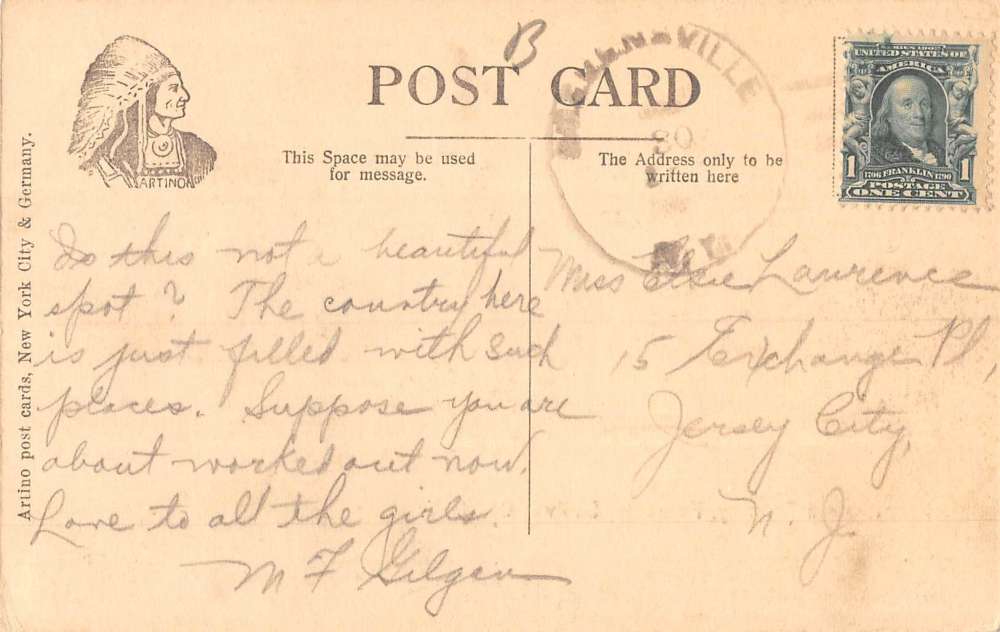 B
POST CARD
ARTINO
Artino post cards, New York City & Germany.
This Space may be used
for message.
The Address only to be
written here
VILLE
SERIES 1902
UNITED STATES OF
AMERICA
1 1
1706 FRANKLIN 1790
POSTAGE
ONE CENT
Is this not a beautiful
spot? The country here
is just filled with such
places. Suppose you are
about worked out now.
Love to all the girls.
M F Gilgan
Miss Elsie Lawrence
15 Exchange Pl,
Jersey City,
N. J.